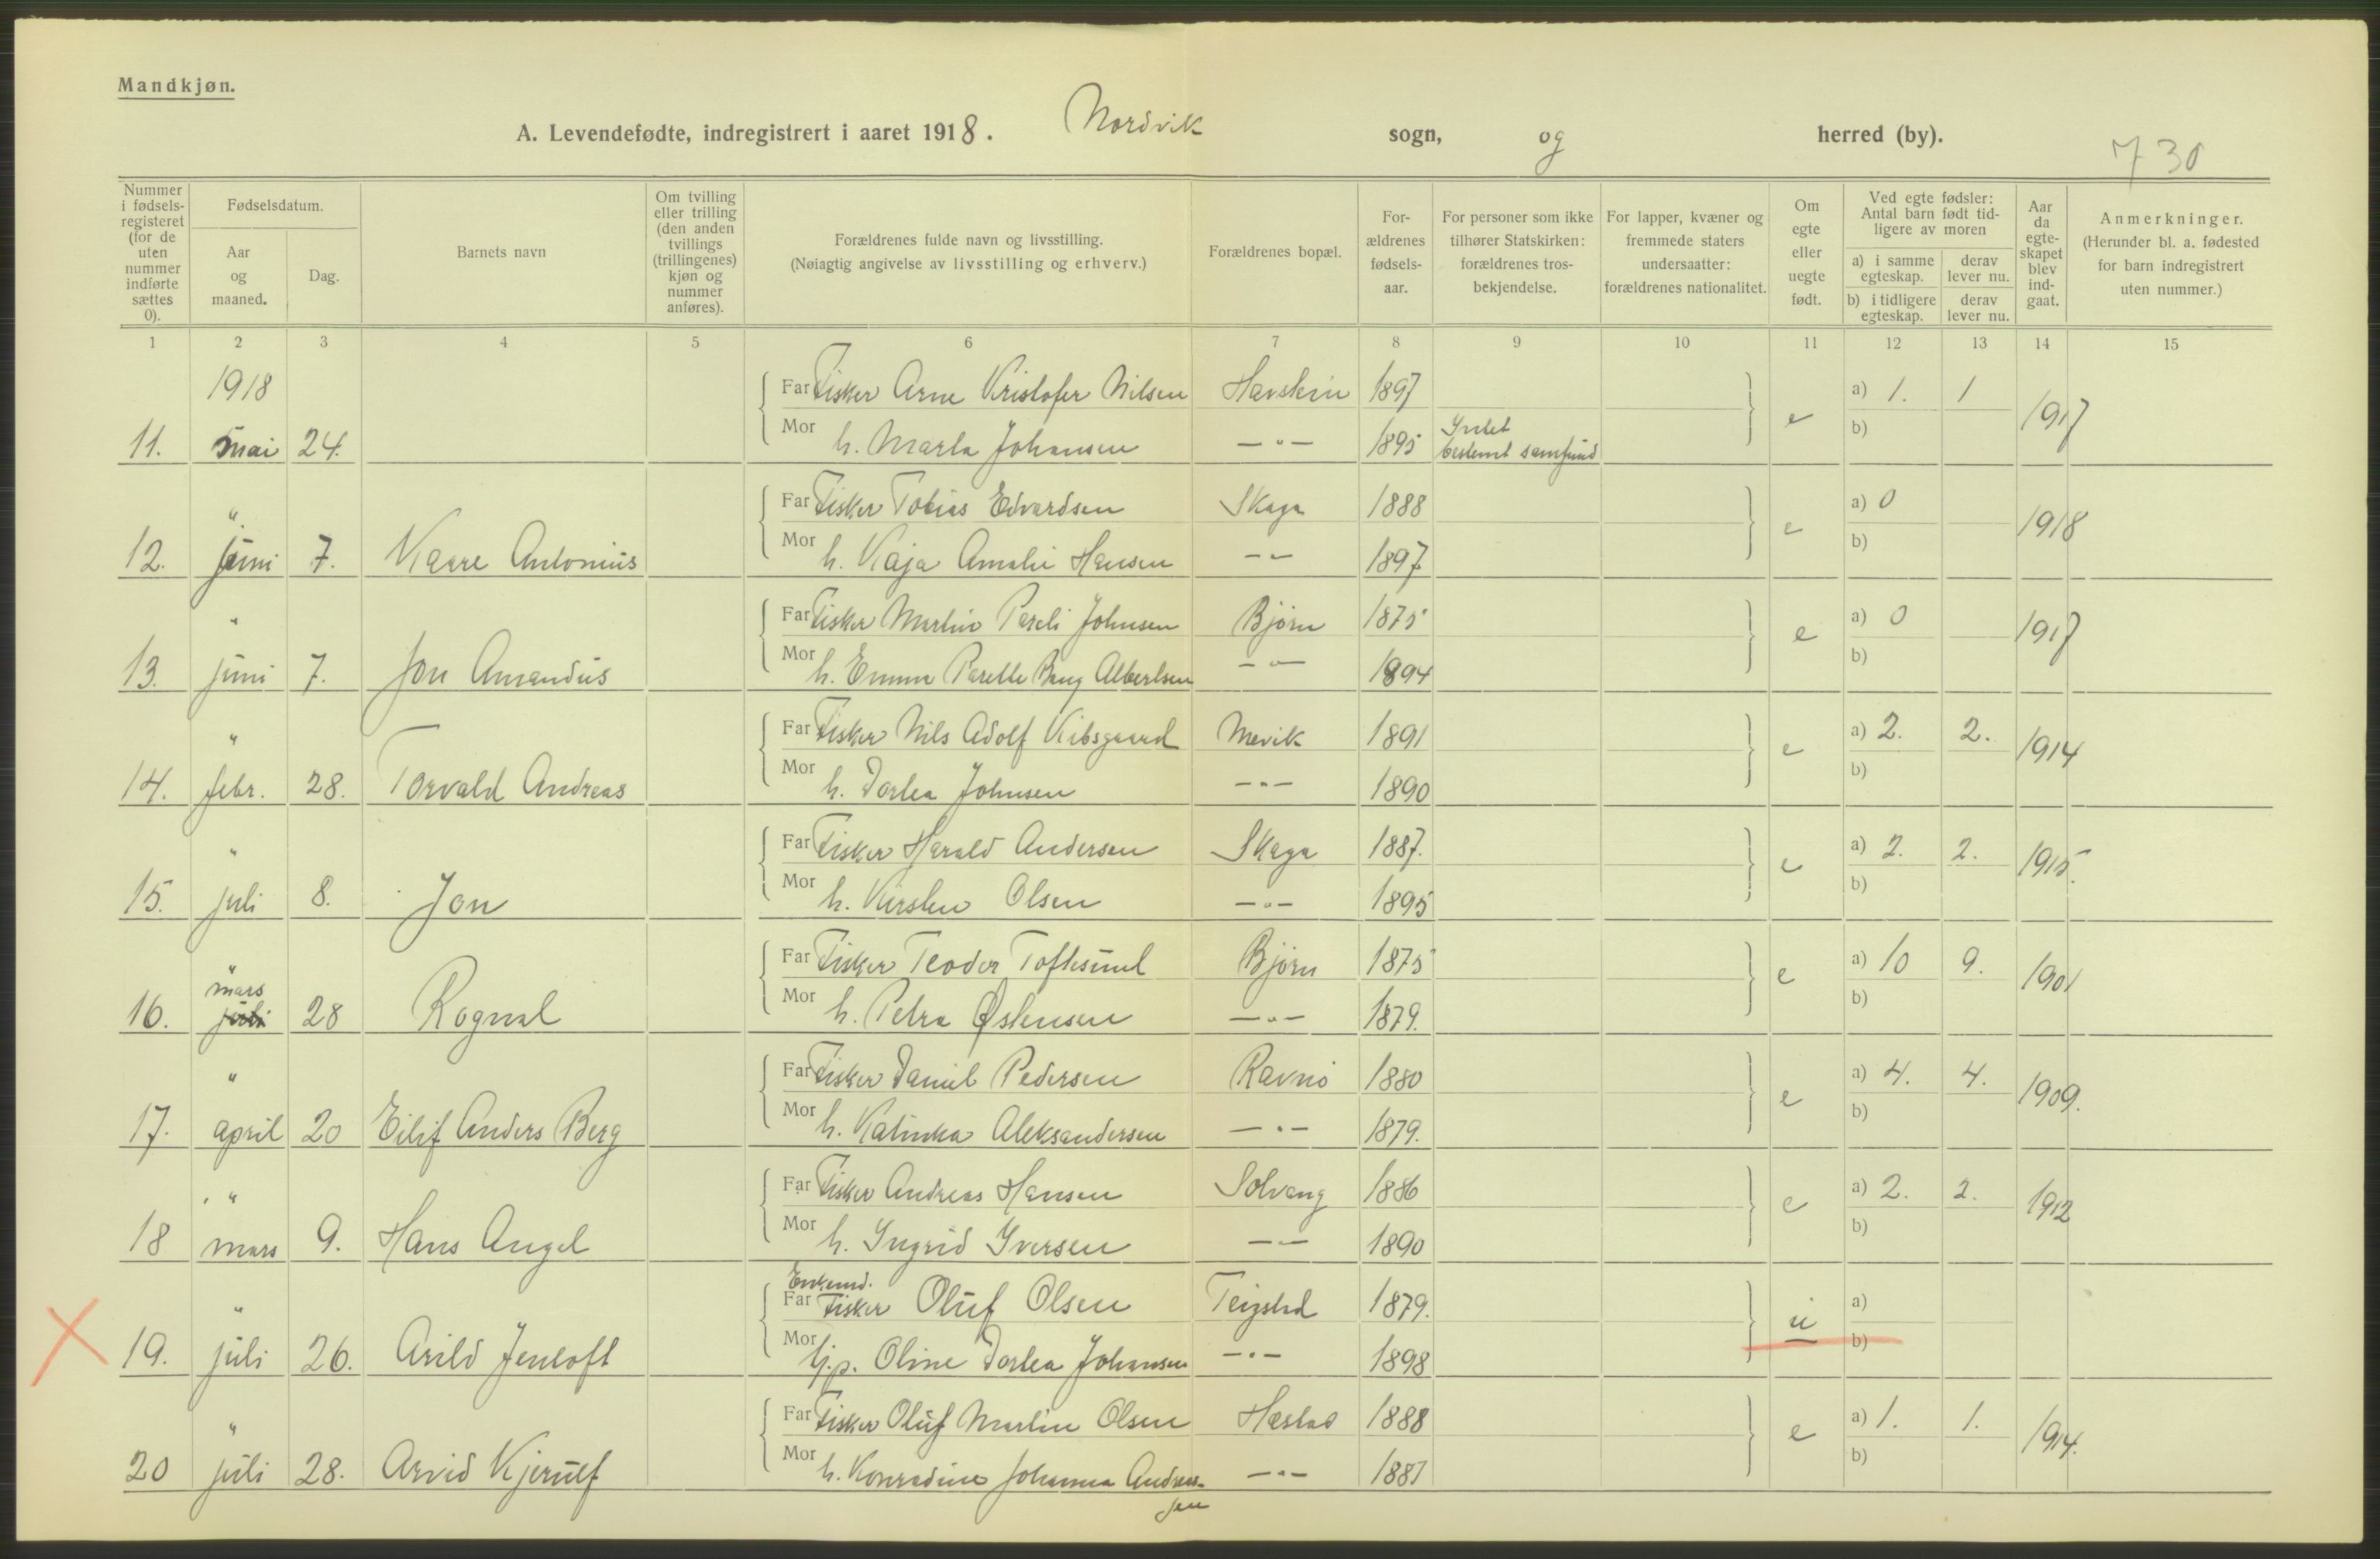 Mandkjøn.
A. Levendefødte, indregistrert i aaret 1918. Nordvik sogn, og herred (by).
730
Nummer i fødselsregisteret (for de uten nummer indførte sættes 0).
Fødselsdatum.
Aar og maaned.
Dag.
Barnets navn
Om tvilling eller trilling (den anden tvillings (trillingenes) kjøn og nummer anføres).
Forældrenes fulde navn og livsstilling.
(Nøiagtig angivelse av livsstilling og erhverv.)
Forældrenes bopæl.
Forældrenes fødselsaar.
For personer som ikke tilhører Statskirken: forældrenes trosbekjendelse.
For lapper, kvæner og fremmede staters undersaatter: forældrenes nationalitet.
Om egte eller uegte født.
Ved egte fødsler: Antal barn født tidligere av moren
a) i samme egteskap.
derav lever nu.
b) i tidligere egteskap.
derav lever nu.
Aar da egteskapet blev indgaat.
Anmerkninger.
(Herunder bl. a. fødested for barn indregistrert uten nummer.)
1 2 3 4 5 6 7 8 9 10 11 12 13 14 15
1918 Far Fisker Arne Kristofer Nilsen Havstein 1897 a) 1. 1
11. mai 24. Mor h. Marta Johansen —"— 1895 Intet bestemt samfund e b) 1917
" Far Fisker Tobias Edvardsen Skaga 1888 a) 0
12. juni 7. Kaare Antonius Mor h. Kaja Amalie Hansen —"— 1897 e b) 1918
" Far Fisker Martin Pareli Johnsen Bjørn 1875 a) 0
13. juni 7. Jon Amandus Mor h. Emma Parelle Bang Albertsen —"— 1894 e b) 1917
" Far Fisker Nils Adolf Kibsgaard Mevik 1891 a) 2. 2.
14. febr. 28. Torvald Andreas Mor h. Dortea Johnsen —"— 1890 e b) 1914
" Far Fisker Harald Andersen Skaga 1887. a) 2. 2.
15. juli 8. Jon Mor h. Kirsten Olsen —"— 1895 e b) 1915.
" Far Fisker Teodor Toftesund Bjørn 1875 a) 10 9.
16. mars juli 28 Rognal Mor h. Petra Østensen —"— 1879. e b) 1901
" Far Fisker Daniel Pedersen Ravnø 1880 a) 4. 4.
17. april 20 Eilif Anders Berg Mor h. Katinka Aleksandersen —"— 1879. e b) 1909.
" Far Fisker Andreas Hansen Solvang 1886 a) 2. 2.
18 mars 9. Hans Angel Mor h. Ingrid Iversen —"— 1890 e b) 1912
Enkemd.
" Far Fisker Oluf Olsen Teigstad 1879. a)
19. juli 26. Arild Jentoft Mor tj.p. Oline Dortea Johansen —"— 1898 u b)
" Far Fisker Oluf Martin Olsen Hæstad 1888 a) 1. 1.
20 juli 28. Arvid Kjerulf Mor h. Konradine Johanna Andreas- —"— 1887 e b) 1914.
sen